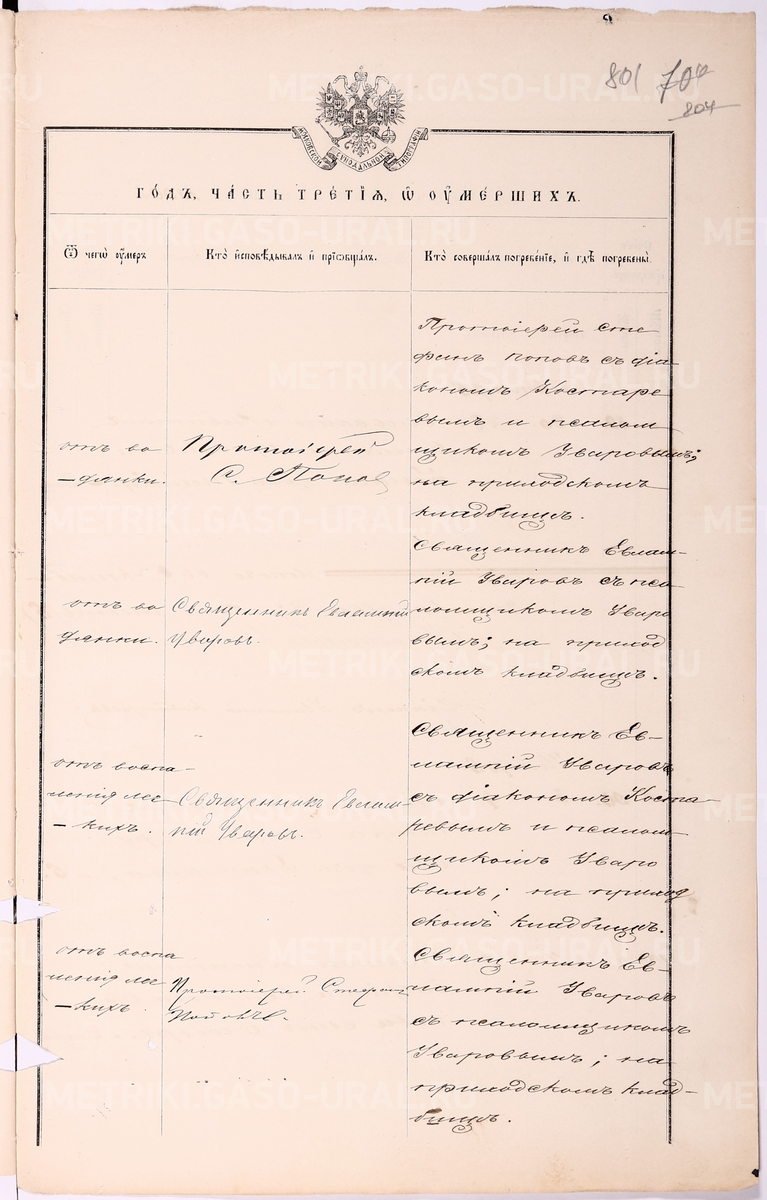 801 704
804
МОСКОВСКОЙ СѴНОДАЛЬНОЙ ТИПОГРАФІИ
ГО́ДЪ, ЧА́СТЬ ТРЕ́ТІѦ, Ѿ ОУМЕ́РШИХЪ.
Ѿ чегѡ̀ оу́меръ
Кто̀ и҆сповѣ́дывалъ и҆ приѻбща́лъ.
Кто̀ соверша́лъ погребе́ніе, и҆ гдѣ̀ погребены̀.
отъ во
–дянки.
Протоіерей
С. Попов
Протоіерей Сте
фанъ Поповъ съ діа
кономъ Костаре
вымъ и псалом
щикомъ Уваровымъ;
на приходскомъ
кладбищѣ.
отъ во
дянки.
Священникъ Евлампій
Уваровъ.
Священникъ Евлам–
пій Уваровъ съ пса
ломщикомъ Уваро
вымъ; на приход
скомъ кладбищѣ.
отъ воспа–
ленія лег
–кихъ.
Священникъ Евлам–
пій Уваровъ.
Священникъ Ев–
лампій Уваровъ
съ діакономъ Коста–
ревымъ и псалом–
щикомъ Уваро
вымъ; на приход
скомъ кладбищѣ.
отъ воспа
ленія лег
–кихъ.
Протоіерей Стефанъ
Поповъ.
Священникъ Ев–
лампій Уваровъ
съ псаломщикомъ
Уваровымъ; на
приходскомъ клад–
бищѣ.
METRIKI.GASO-URAL.RU